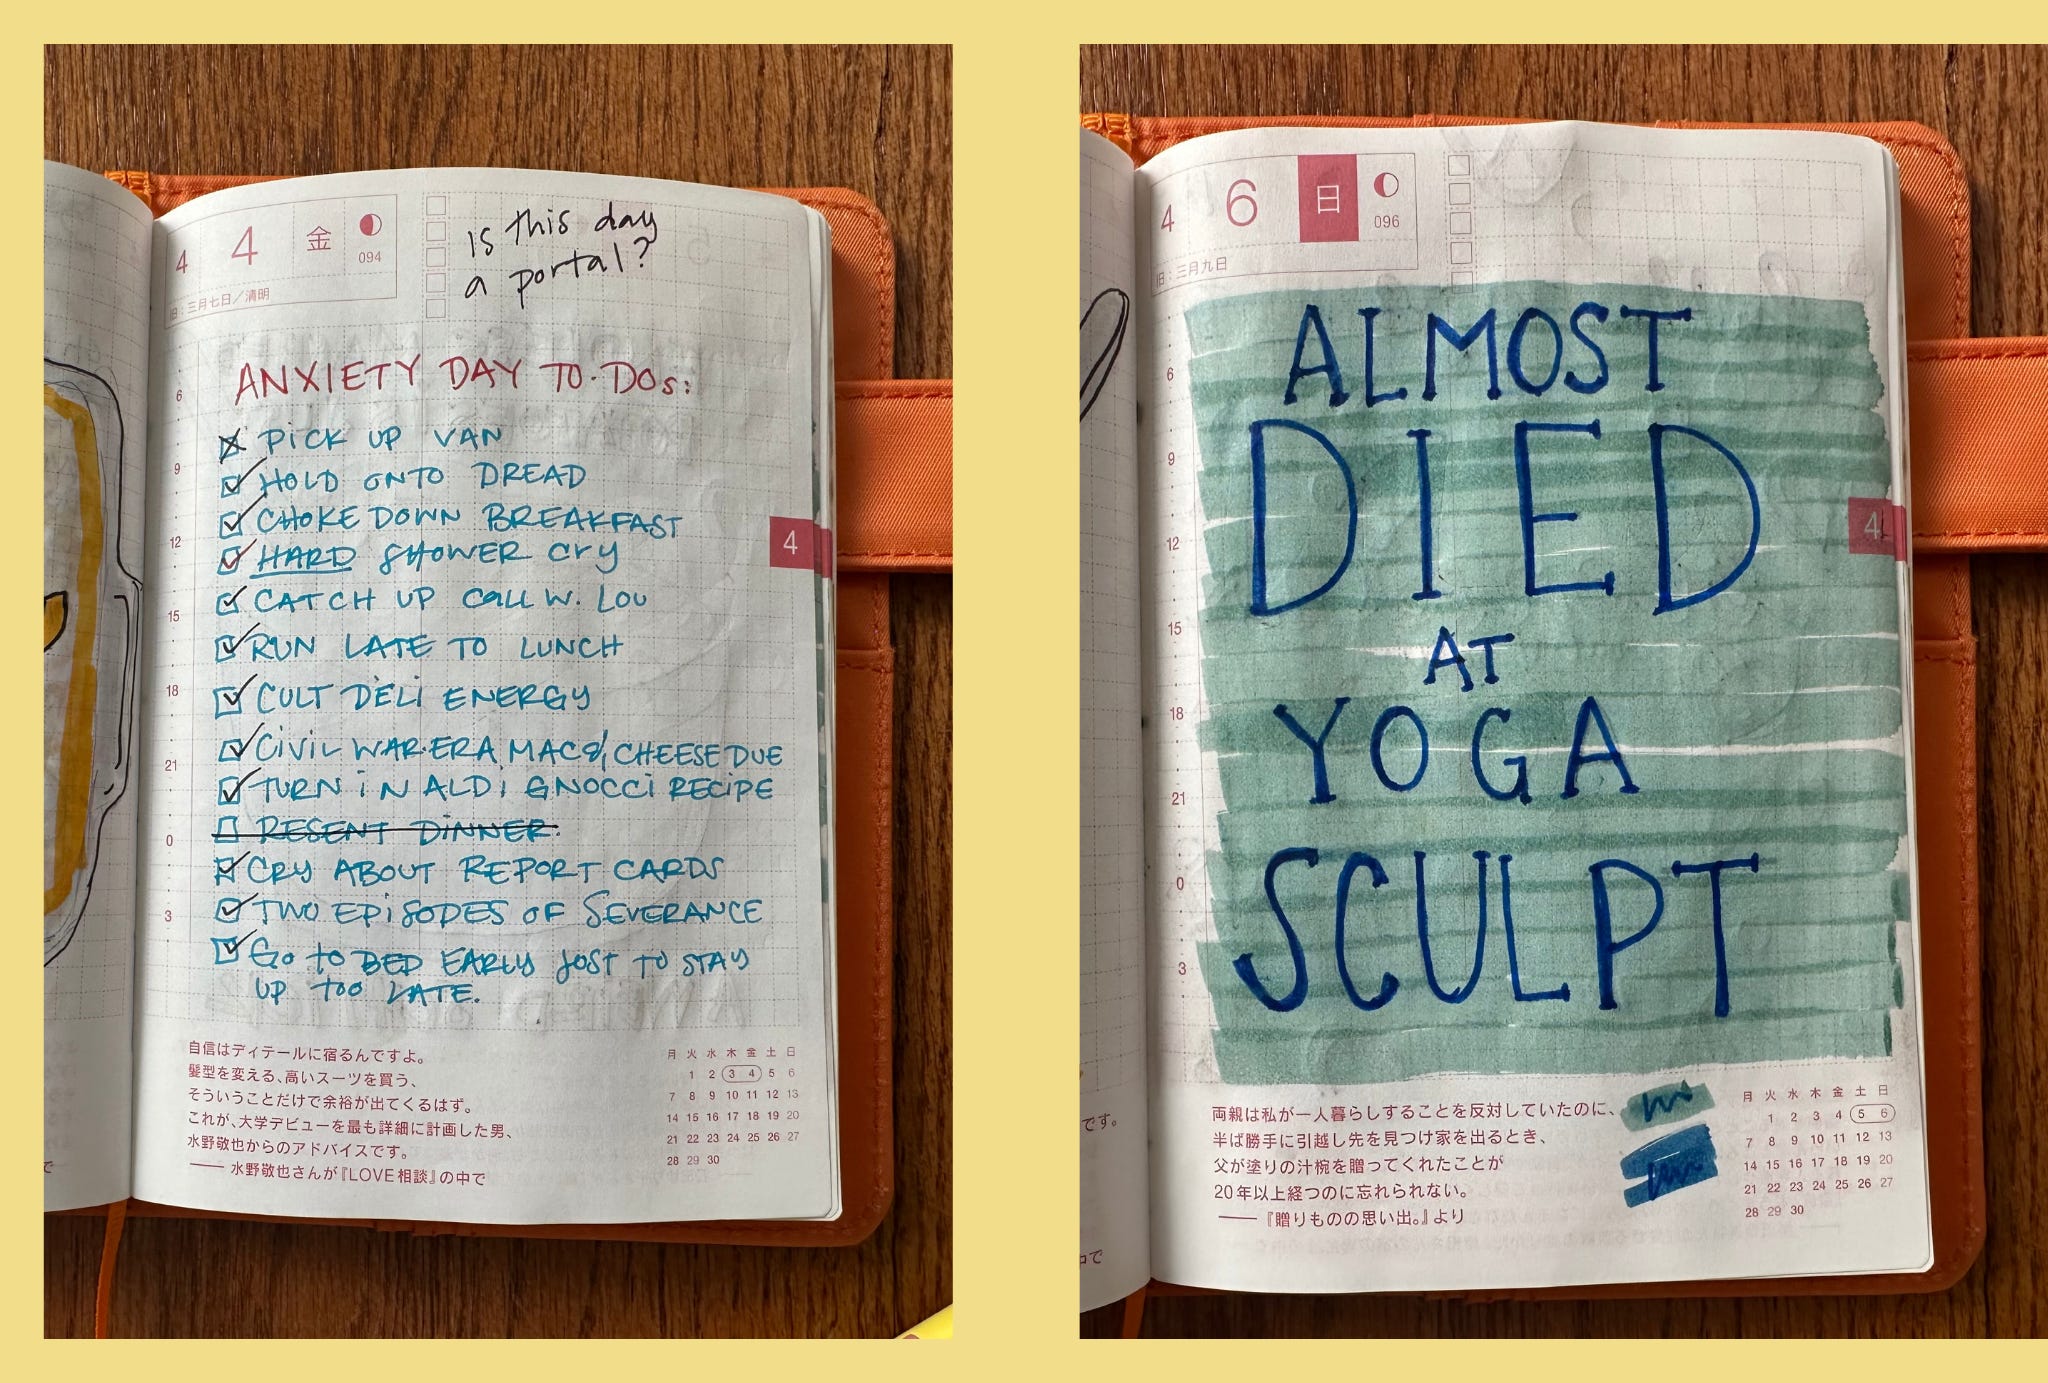 4 4 金
094
旧:三月七日/清明
Is this day
a portal?
ANXIETY DAY TO·DOs:
PICK UP VAN
HOLD ONTO DREAD
CHOKE DOWN BREAKFAST
HARD SHOWER CRY
CATCH UP CALL W. LOU
RUN LATE TO LUNCH
CULT DELI ENERGY
CIVIL WAR·ERA MAC & CHEESE DUE
TURN IN ALDI GNOCCI RECIPE
RESENT DINNER.
CRY ABOUT REPORT CARDS
TWO EPISODES OF SEVERANCE
GO TO BED EARLY JOST TO STAY
UP TOO LATE.
6
9
12
15
18
21
0
3
4
自信はディテールに宿るんですよ。
髪型を変える、高いスーツを買う、
そういうことだけで余裕が出てくるはず。
これが、大学デビューを最も詳細に計画した男、
水野敬也からのアドバイスです。
―― 水野敬也さんが『LOVE相談』の中で
月 火 水 木 金 土 日
1 2 3 4 5 6
7 8 9 10 11 12 13
14 15 16 17 18 19 20
21 22 23 24 25 26 27
28 29 30
て
4 6 日
096
旧:三月九日
ALMOST
DIED
AT
YOGA
SCULPT
6
9
12
15
18
21
0
3
4
両親は私が一人暮らしすることを反対していたのに、
半ば勝手に引越し先を見つけ家を出るとき、
父が塗りの汁椀を贈ってくれたことが
20年以上経つのに忘れられない。
――『贈りものの思い出。』より
月 火 水 木 金 土 日
1 2 3 4 5 6
7 8 9 10 11 12 13
14 15 16 17 18 19 20
21 22 23 24 25 26 27
28 29 30
です。
中で